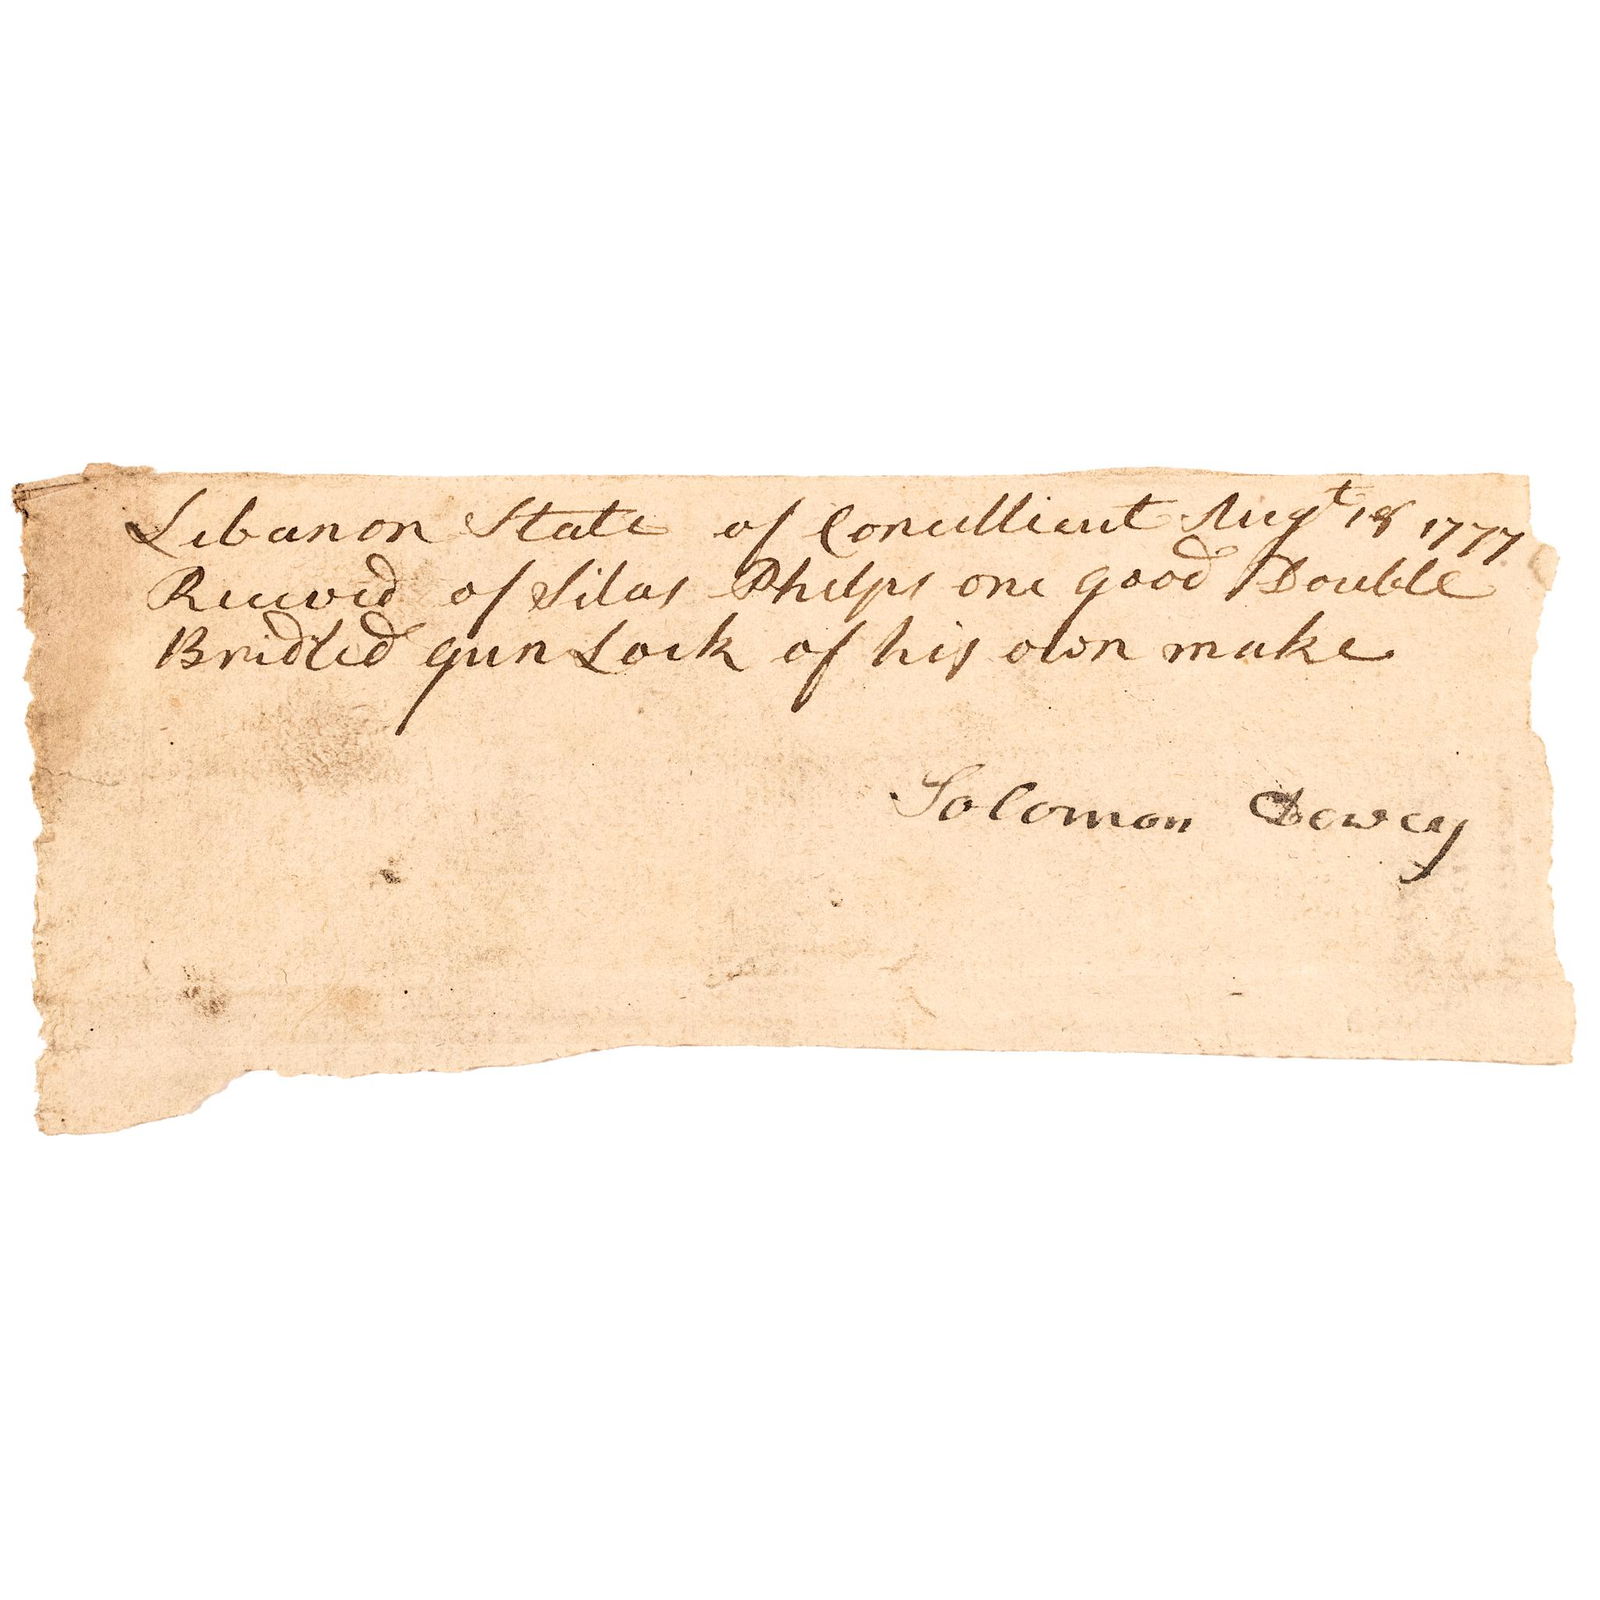 Lebanon State of Conetticut Augt 18 1777
Receivd of Silas Phelps one good Double
Bridled gun Lock of his own make
Solomon Dewey